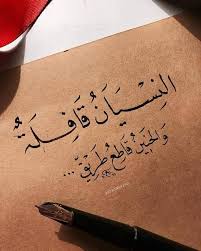 النِسيَانُ قَافِلَةٌ
وَالحَنِينُ قَاطِعُ طَرِيقٍ ...